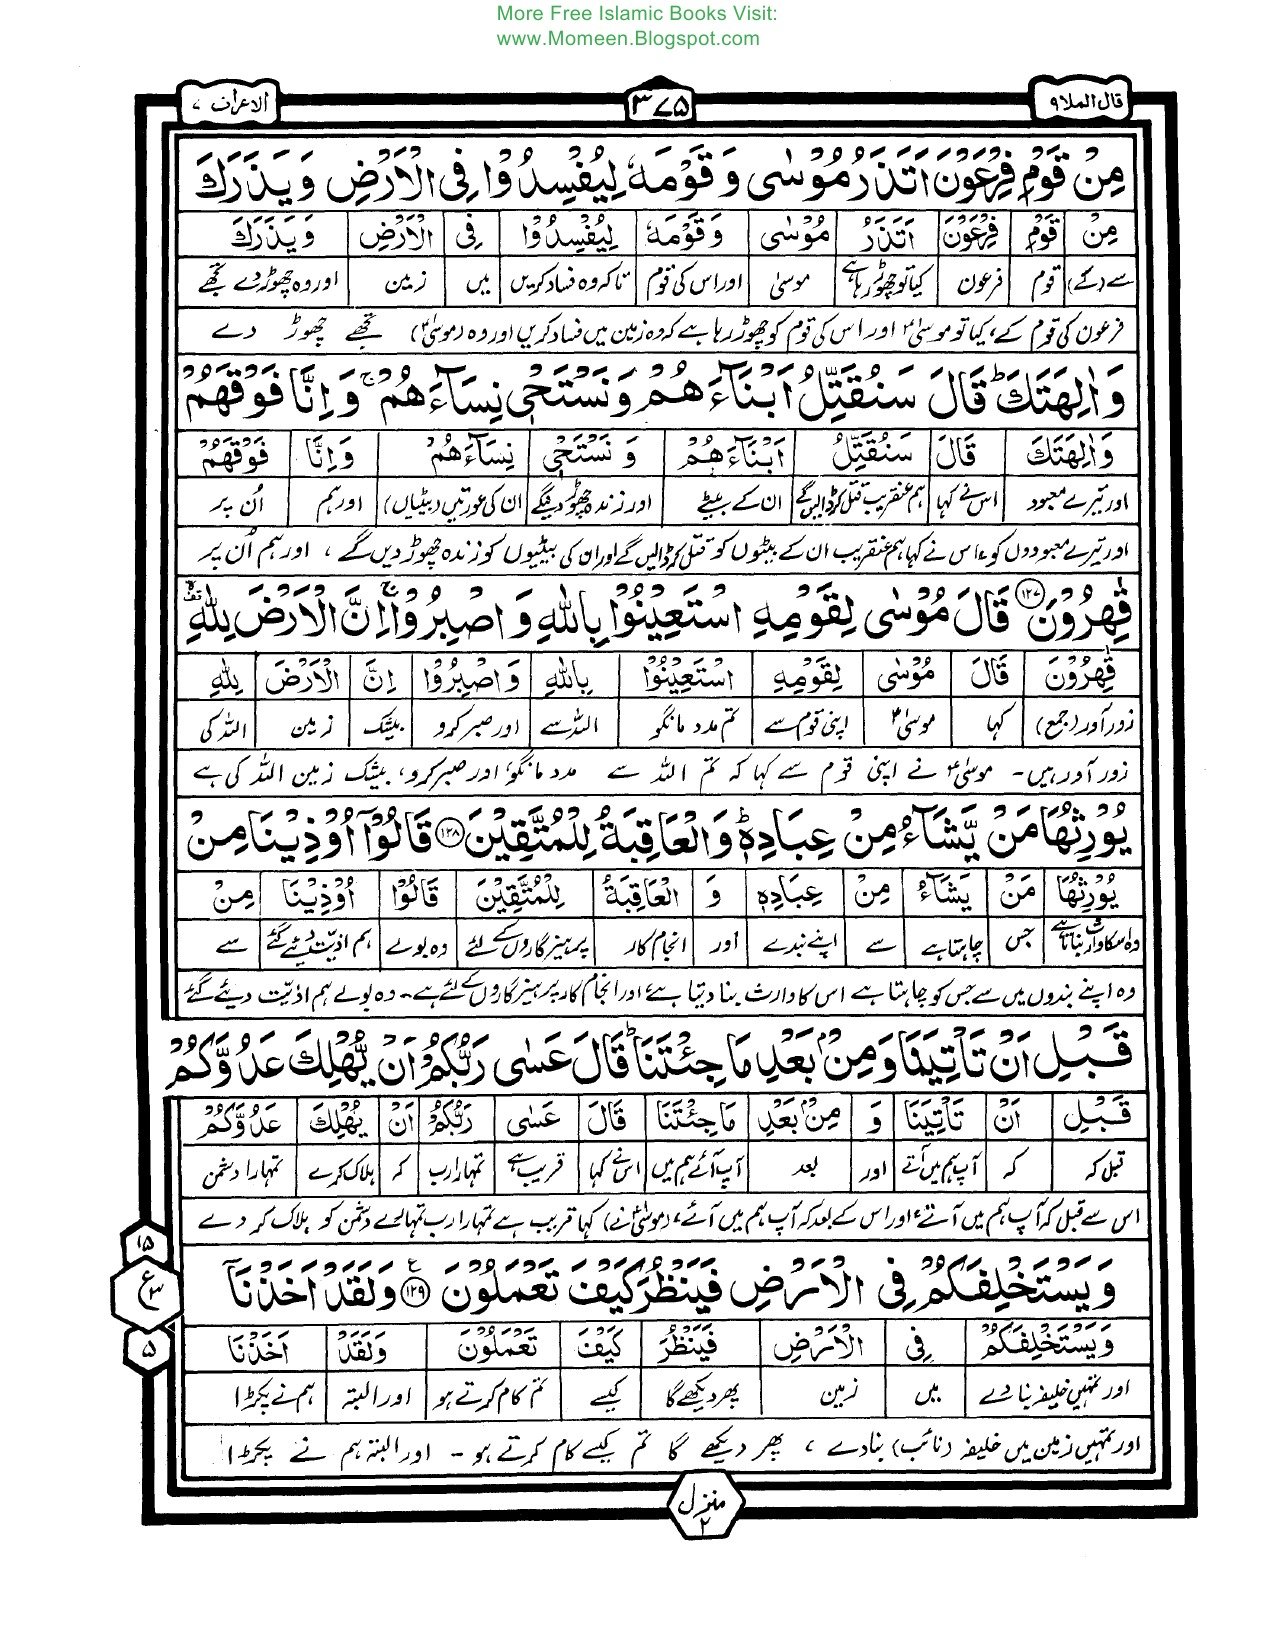 More Free Islamic Books Visit:
www.Momeen.Blogspot.com
قال الملا ٩
٣٧۵
الاعراف ٧
مِنْ قَوْمِ فِرْعَوْنَ اَتَذَرُ مُوْسٰى وَ قَوْمَهٗ لِيُفْسِدُوْا فِى الْاَرْضِ وَ يَذَرَكَ
مِنْ قَوْمِ فِرْعَوْنَ اَتَذَرُ مُوْسٰى وَ قَوْمَهٗ لِيُفْسِدُوْا فِى الْاَرْضِ وَ يَذَرَكَ
سے (کے) قوم فرعون کیا تو چھوڑ رہا ہے موسیٰ اور اس کی قوم تاکہ وہ فساد کریں میں زمین اور وہ چھوڑ دے تجھے
فرعون کی قوم کے، کیا تو موسیٰؑ اور اس کی قوم کو چھوڑ رہا ہے کہ وہ زمین میں فساد کریں اور وہ (موسیٰؑ) تجھے چھوڑ دے
وَ اٰلِهَتَكَ ؕ قَالَ سَنُقَتِّلُ اَبْنَآءَهُمْ وَ نَسْتَحْىٖ نِسَآءَهُمْ ۚ وَ اِنَّا فَوْقَهُمْ
وَ اٰلِهَتَكَ قَالَ سَنُقَتِّلُ اَبْنَآءَهُمْ وَ نَسْتَحْىٖ نِسَآءَهُمْ وَ اِنَّا فَوْقَهُمْ
اور تیرے معبود اس نے کہا ہم عنقریب قتل کر ڈالیں گے ان کے بیٹے اور زندہ چھوڑ دینگے ان کی عورتیں (بیٹیاں) اور ہم اُن پر
اور تیرے معبودوں کو، اس نے کہا ہم عنقریب ان کے بیٹوں کو قتل کر ڈالیں گے اور ان کی بیٹیوں کو زندہ چھوڑ دیں گے، اور ہم اُن پر
قٰهِرُوْنَ ١٢٧ قَالَ مُوْسٰى لِقَوْمِهِ اسْتَعِيْنُوْا بِاللّٰهِ وَ اصْبِرُوْا ۚ اِنَّ الْاَرْضَ لِلّٰهِ
قٰهِرُوْنَ قَالَ مُوْسٰى لِقَوْمِهِ اسْتَعِيْنُوْا بِاللّٰهِ وَ اصْبِرُوْا اِنَّ الْاَرْضَ لِلّٰهِ
زور آور (جمع) کہا موسیٰؑ اپنی قوم سے تم مدد مانگو اللہ سے اور صبر کرو بیشک زمین اللہ کی
زور آور ہیں۔ موسیٰؑ نے اپنی قوم سے کہا کہ تم اللہ سے مدد مانگو، اور صبر کرو، بیشک زمین اللہ کی ہے
يُوْرِثُهَا مَنْ يَّشَآءُ مِنْ عِبَادِهٖ ؕ وَ الْعَاقِبَةُ لِلْمُتَّقِيْنَ ١٢٨ قَالُوْۤا اُوْذِيْنَا مِنْ
يُوْرِثُهَا مَنْ يَشَآءُ مِنْ عِبَادِهٖ وَ الْعَاقِبَةُ لِلْمُتَّقِيْنَ قَالُوْا اُوْذِيْنَا مِنْ
وہ اسکا وارث بناتا ہے جس چاہتا ہے سے اپنے بندے اور انجام کار پرہیزگاروں کے لئے وہ بولے ہم اذیت دیئے گئے سے
وہ اپنے بندوں میں سے جس کو چاہتا ہے اس کا وارث بنا دیتا ہے، اور انجام کار پرہیزگاروں کے لئے ہے۔ وہ بولے ہم اذیت دیئے گئے
قَبْلِ اَنْ تَاْتِيَنَا وَ مِنْۢ بَعْدِ مَا جِئْتَنَا ؕ قَالَ عَسٰى رَبُّكُمْ اَنْ يُّهْلِكَ عَدُوَّكُمْ
قَبْلِ اَنْ تَاْتِيَنَا وَ مِنْۢ بَعْدِ مَا جِئْتَنَا قَالَ عَسٰى رَبُّكُمْ اَنْ يُّهْلِكَ عَدُوَّكُمْ
قبل کہ کہ آپ ہم میں آتے اور بعد آپ آئے ہم میں اس نے کہا قریب ہے تمہارا رب کہ ہلاک کرے تمہارا دشمن
اس سے قبل کہ آپ ہم میں آتے، اور اس کے بعد کہ آپ ہم میں آئے، (موسیٰؑ نے) کہا قریب ہے تمہارا رب تمہارے دشمن کو ہلاک کر دے
وَ يَسْتَخْلِفَكُمْ فِى الْاَرْضِ فَيَنْظُرَ كَيْفَ تَعْمَلُوْنَ ١٢٩ ع وَ لَقَدْ اَخَذْنَاۤ
وَ يَسْتَخْلِفَكُمْ فِى الْاَرْضِ فَيَنْظُرَ كَيْفَ تَعْمَلُوْنَ وَ لَقَدْ اَخَذْنَا
اور تمہیں خلیفہ بنا دے میں زمین پھر دیکھے گا کیسے تم کام کرتے ہو اور البتہ ہم نے پکڑا
اور تمہیں زمین میں خلیفہ (نائب) بنا دے، پھر دیکھے گا تم کیسے کام کرتے ہو۔ اور البتہ ہم نے پکڑا
١۵
ع ٣
۵
منزل ٢